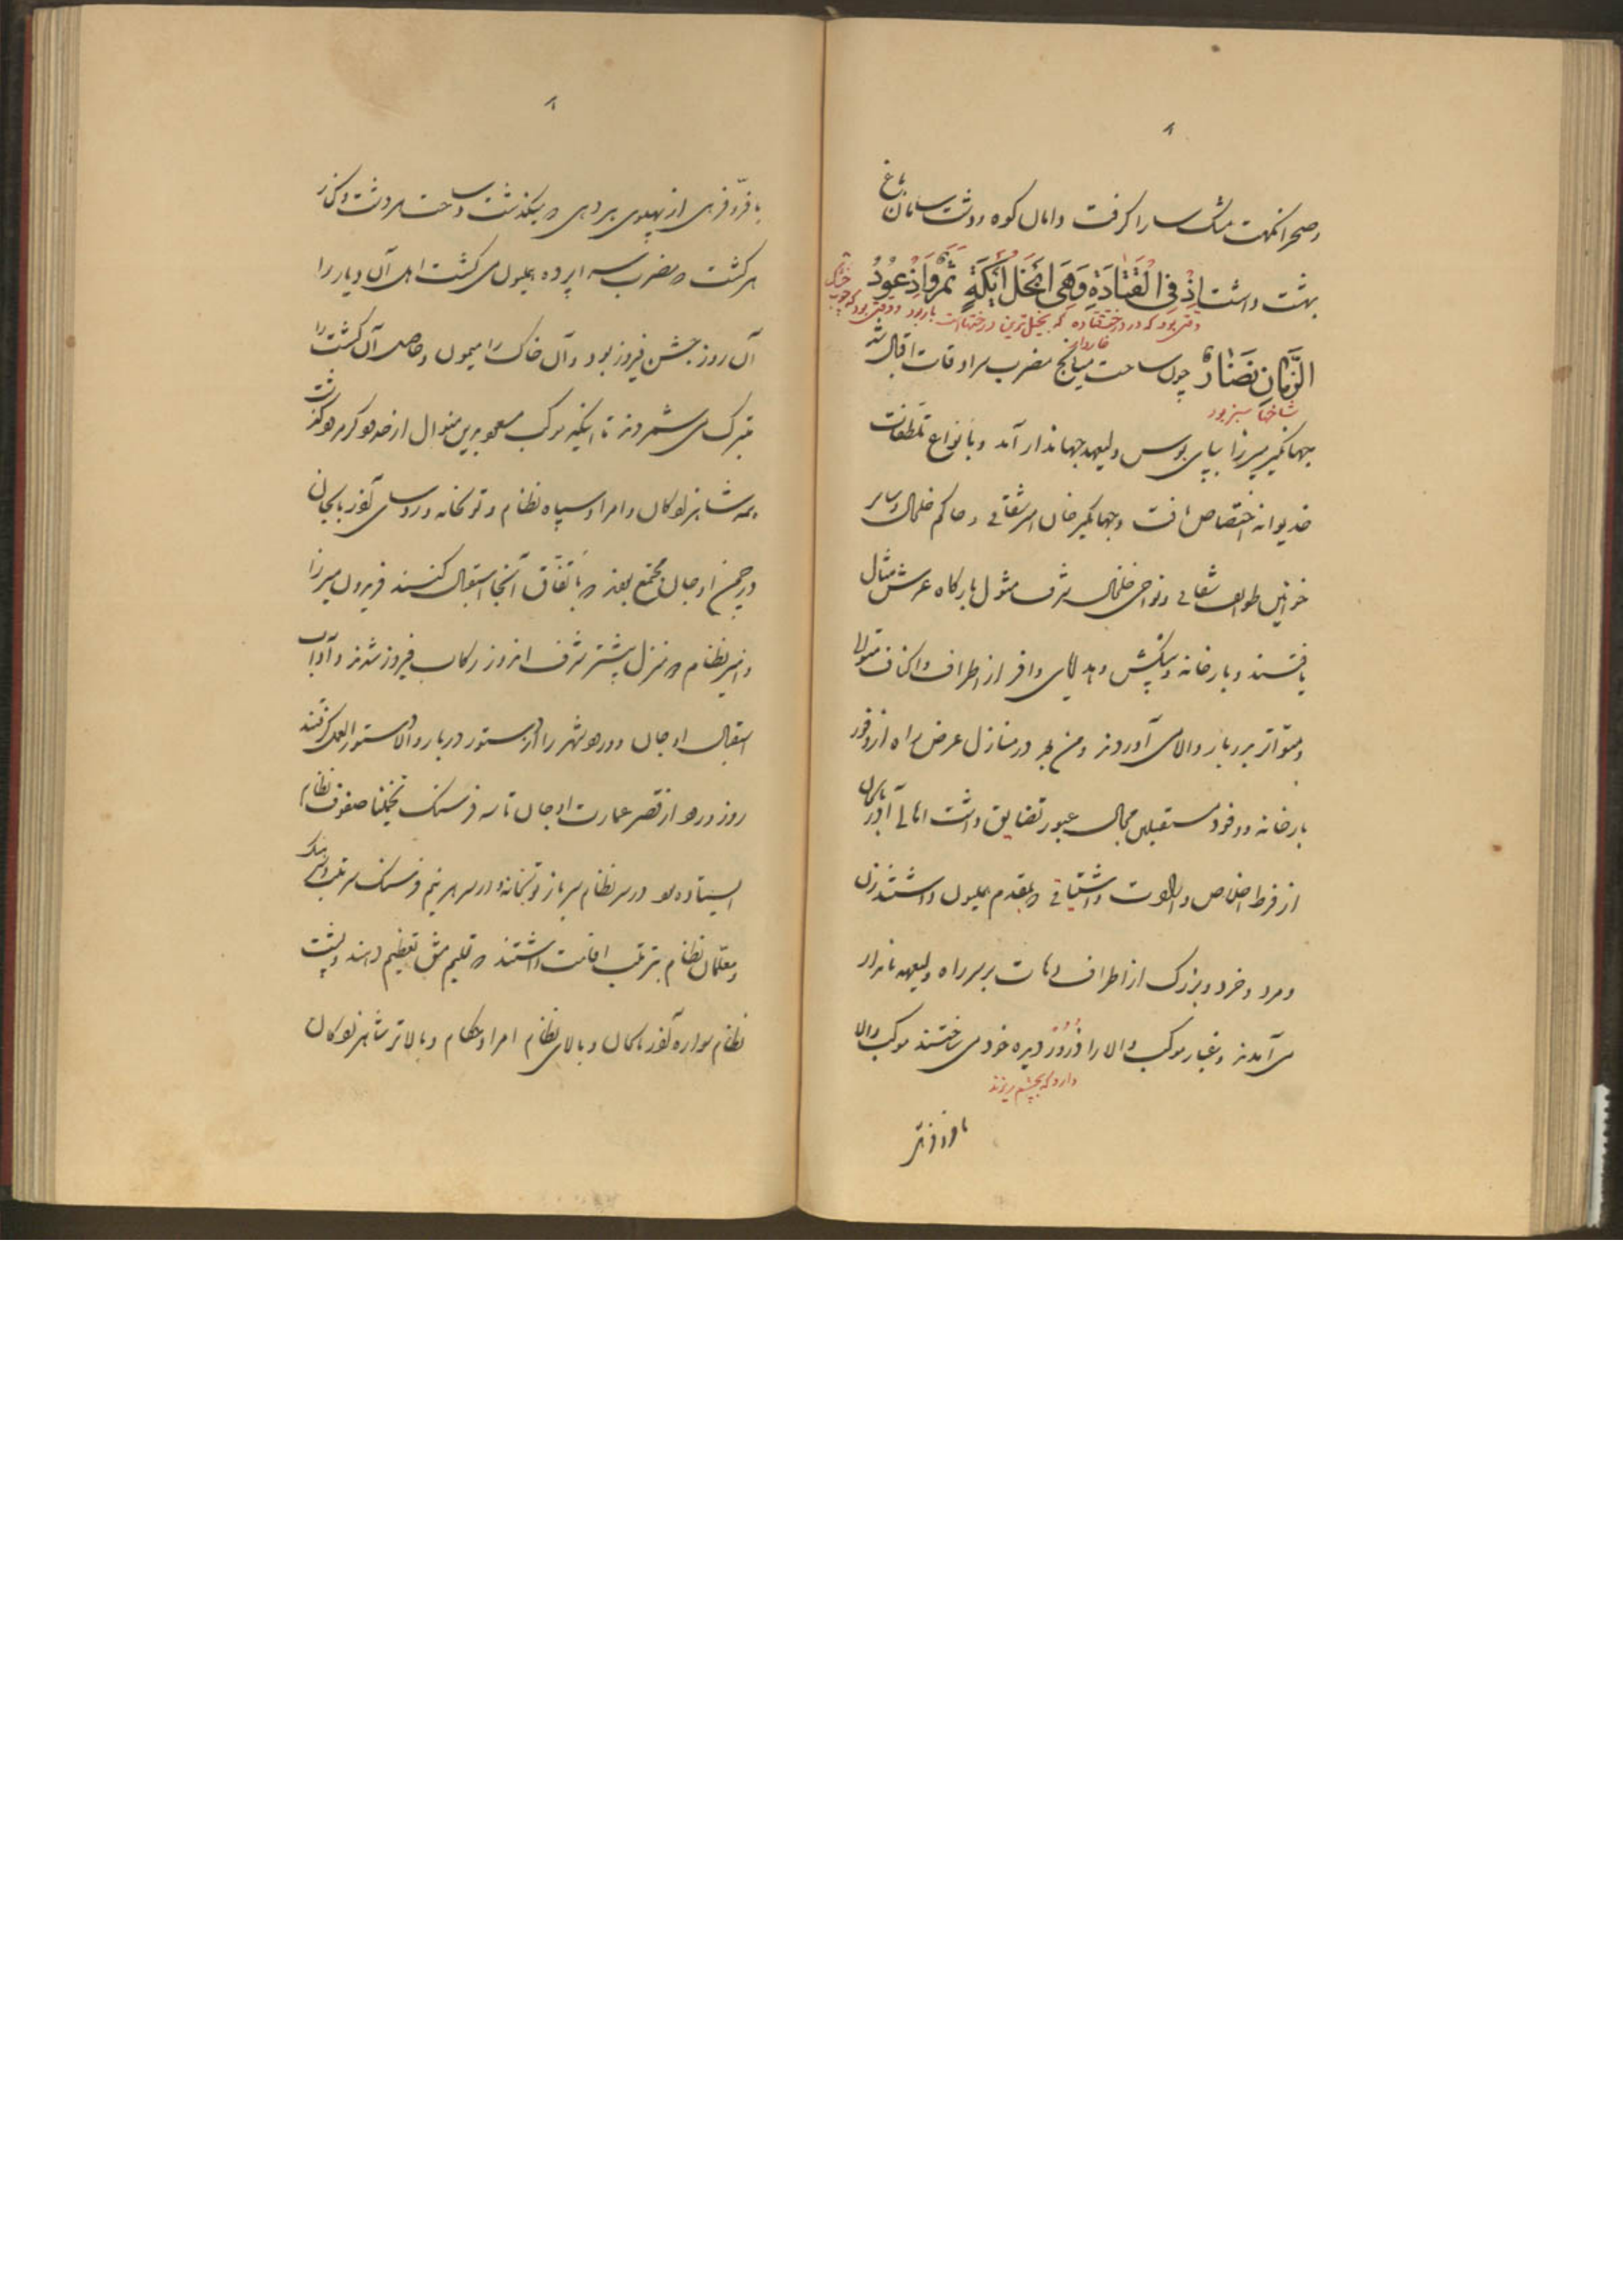 ۸
وصحرا نکهت مشک سارا گرفت و دامان کوه و دشت سامان باغ
بهشت داشت اِذْ فِی الْقَتَادَةِ وَهِیَ اَبْخَلُ اَیْکَةٍ ثَمَرٌ وَاِذْ عُودُ
وقتی بود که در درخت قتاده که بخیل‌ترین درختهاست بار بود و وقتی بود که چوب
الزَّمَانِ نُضَارٌ چون ساحت میانج مضرب سرادقات اقبال شد
شاخها سبز بود
جهانگیر میرزا بپای بوس ولیعهد جهاندار آمد و بانواع تلطفات
خدیوانه اختصاص یافت و جهانگیر خان شقاقی و حاکم خلخال و سایر
خوانین طوایف شقاقی و نواحی خلخال شرف مثول بارگاه عرش مثال
یافتند و بارخانه و پیشکش و هدایای وافر از اطراف و اکناف متوالیا
و متواتر بدربار والا می آوردند و من بعد در منازل عرض راه از وفور
بارخانه و وفود مستقبلین مجال عبور تضایق داشت اهالی آذربایجان
از فرط اخلاص و ارادت و اشتیاقی که بمقدم همایون داشتند زن
و مرد و خرد و بزرگ از اطراف دهات بر سر راه ولیعهد نامدار
می آمدند و غبار موکب والا را ذرور دیده خود می ساختند موکب والا
دارو که بچشم ریزند
با فر و فرهی
۸
با فر و فرهی از پهلوی هر دهی که میگذشت و ساحت هر دشت و کنار
هر کشت که مضرب سراپرده همایون می گشت اهل آن دیار را
آن روز جشن فیروز بود و آن خاک را میمون و حاصل آن کشت را
متبرک می شمردند تا اینکه موکب مسعود برین منوال از حدود گرمرود گذشت
همه شاهزادگان و امرا و سپاه نظام و توپخانه و رؤسای آذربایجان
در چمن اوجان مجتمع بودند که باتفاق آنجا استقبال کنند فریدون میرزا
و امیر نظام که منزل پیشتر شرف اندوز رکاب فیروز شدند و آداب
استقبال اوجان و ورود شهر را از دستور دربار والا دستورالعمل گرفتند
روز ورود از قصر عمارت اوجان تا سه فرسنگ تخمینا صفوف نظام
ایستاده بود در سر نظام سرباز توپخانه و در سر هر نیم فرسنگ سرتیپ و سرهنگ
و معلمان نظام بترتیب اقامت داشتند که تعلیم مشق تعظیم دهند و پشت
نظام سواره آذربایجان و بالای نظام امرا و حکام و بالاتر شاهزادگان